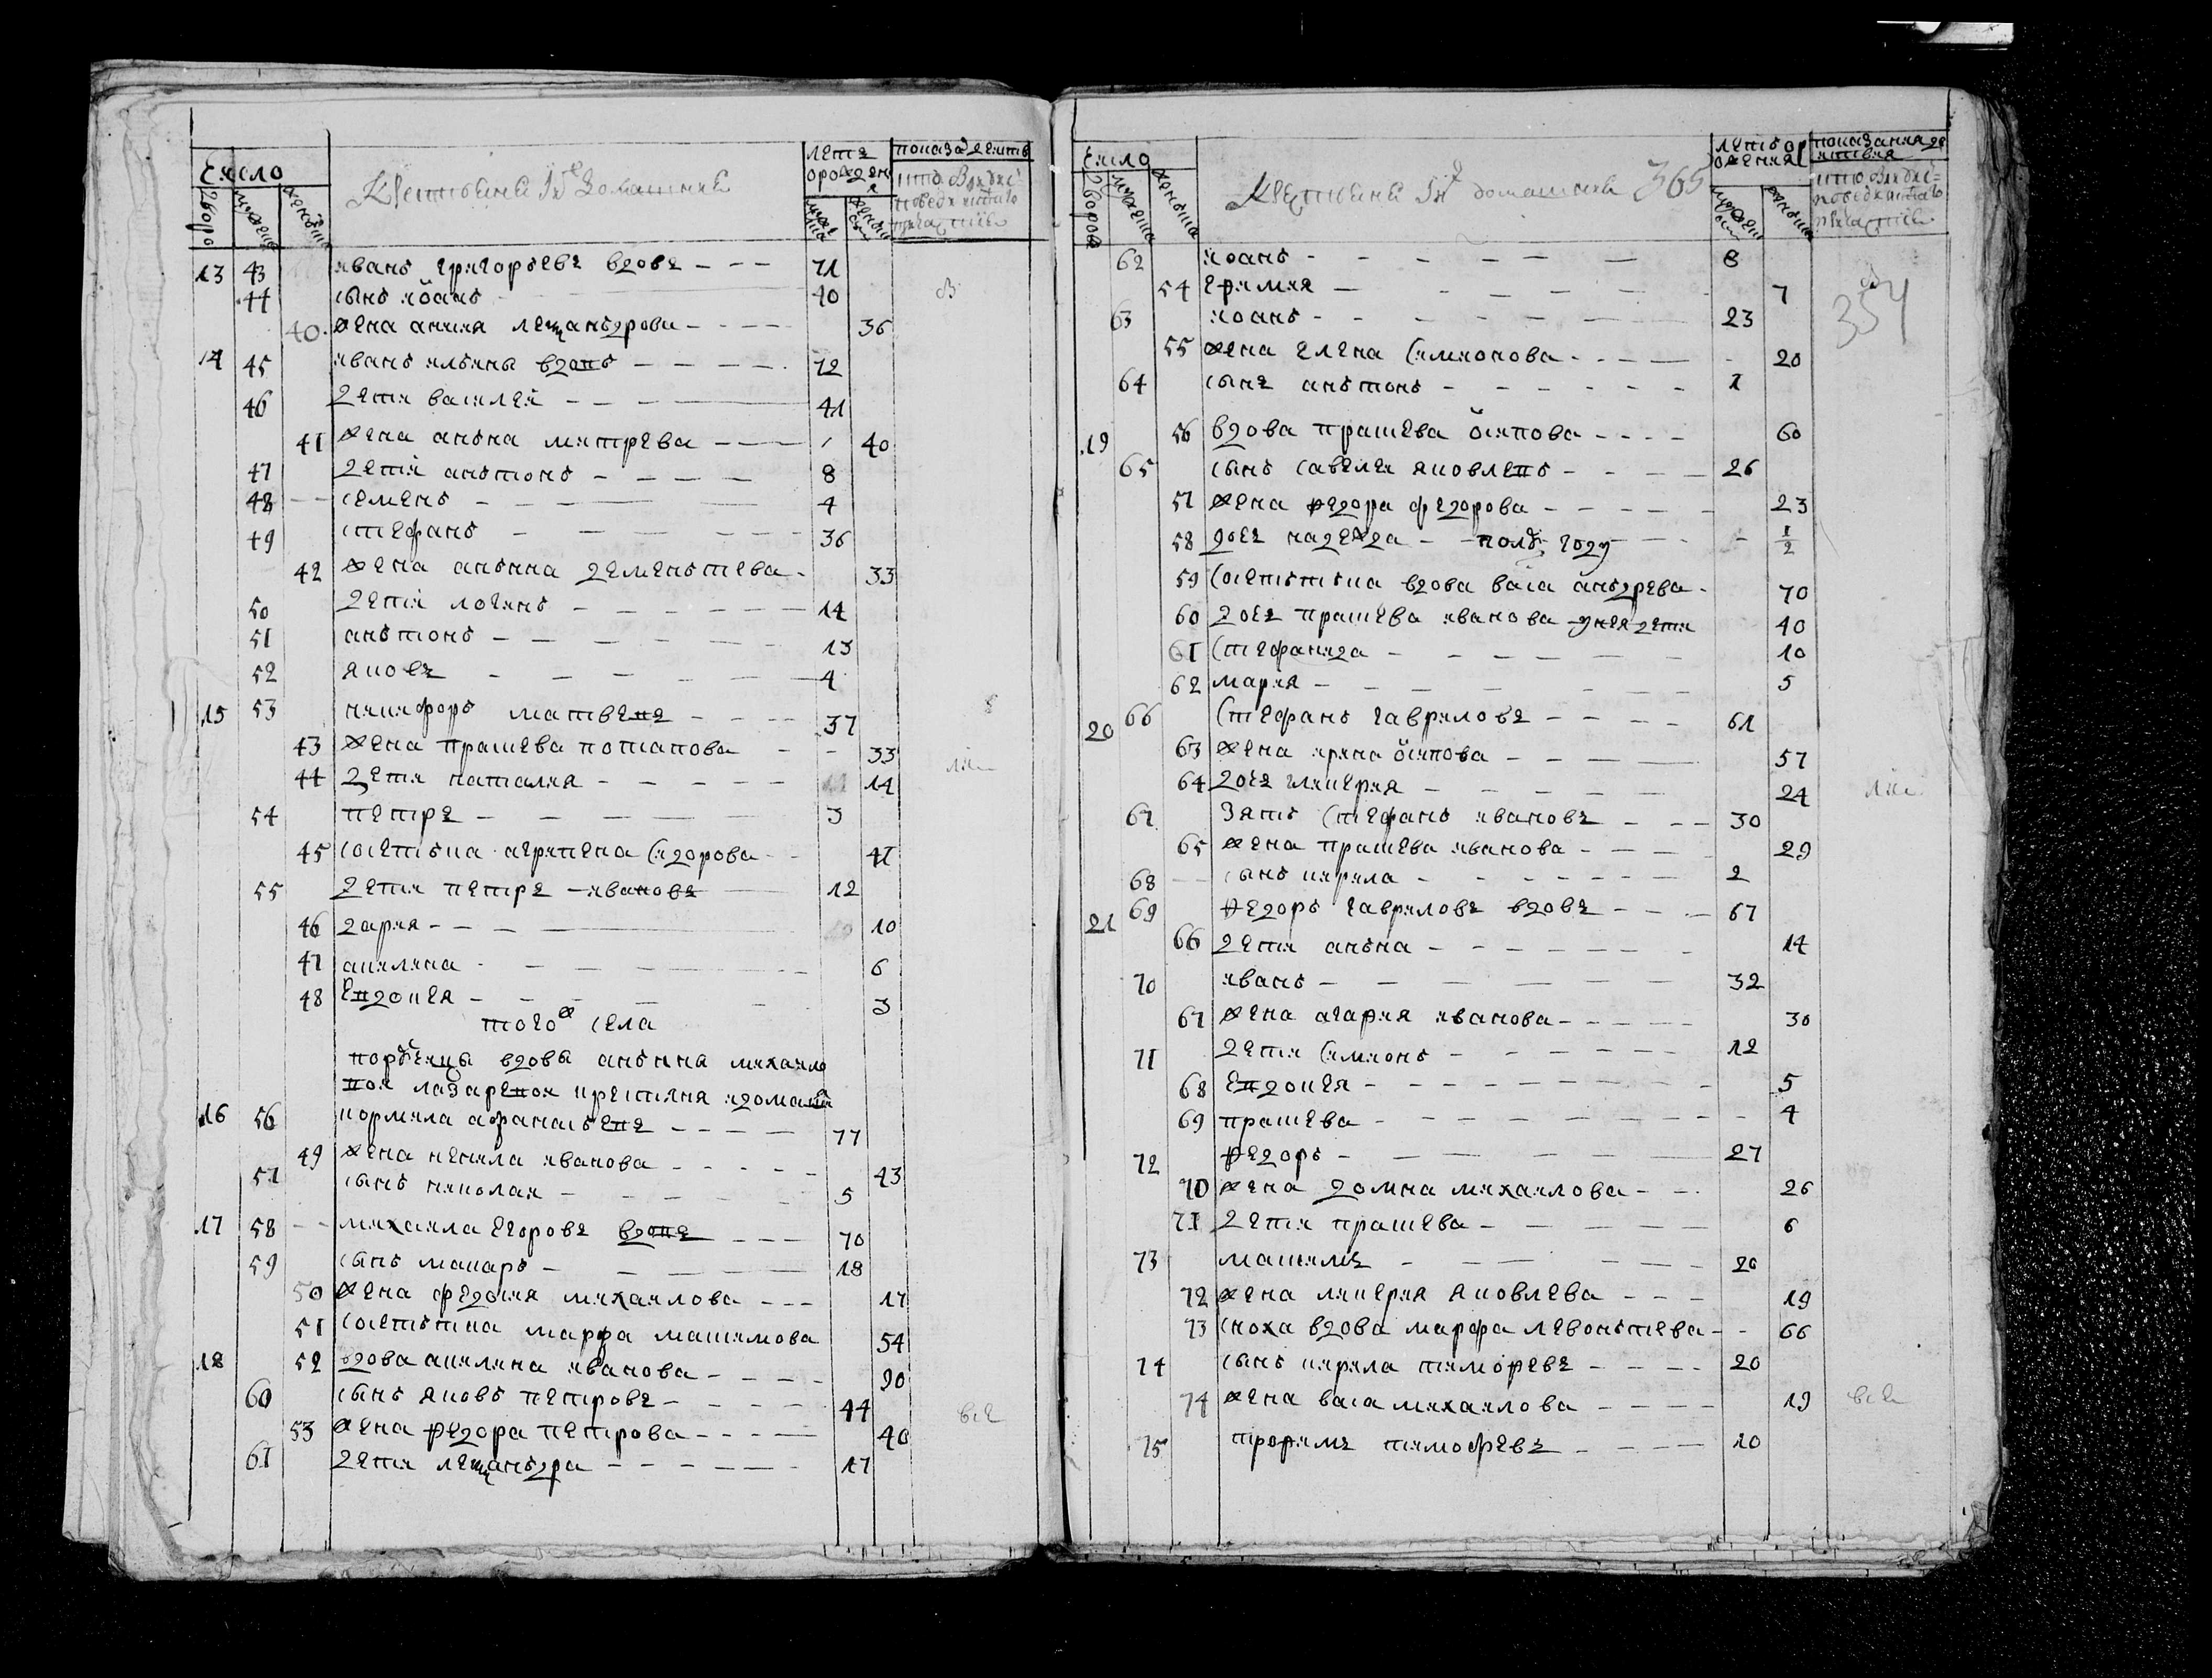 Число
дворо
мужеска
женска
Крестьяне и их домашние
лета от рождения
мужеска
женска
показа дейтв
кто был у исповеди и святаго причастия
13 43 иванъ григорьевъ вдовъ - - - 71
44 сынъ іоанъ 40
40 жена анисия лександрова - - - - 36
14 45 иванъ ильинъ вдовъ - - - - - 72
46 дети василеи - - - - 41
41 жена анъна митрева - - - - 40
47 дети антонъ - - - - 8
48 - - семенъ - - - - 4
49 стефанъ - - - - 36
42 жена анънна дементьева - 33
50 дети логинъ - - - - - 14
51 антонъ - - - - - 13
52 яковъ - - - - - 4
15 53 никифоръ матвеевъ - - - - 37
43 жена прасковья потапова - - 33
44 дети наталия - - - - - 14
54 петръ - - - - - 3
45 солдатка агрипена сидорова - - 41
55 дети петръ ивановъ 12
46 дария - - - - 10
47 акилина - - - - - 6
48 евдокея - - - - - 3
того ж села
порутчицы вдовы анънны михаило
вои лазаревои крестьяня
16 56 кормила афанасьевъ - - - - 77
49 жена ненила иванова - - - - - 43
57 сынъ николаи - - - - - 5
17 58 - - михаила егоровъ вдовъ - - - 70
59 сынъ макаръ - - - - 18
50 жена федосия михаилова - - - 17
51 марфа максимова 54
18 52 вдова акилина иванова - - - - 90
60 сынъ яковъ петровъ - - - - 44
53 жена федора петрова - - - - - 40
61 дети лександра - - - - - - 17
Число
дворовъ
мужеска
женска
Крестьяне и их домашние 365
летъ от рождения
мужеска
женска
показания действия
кто был у исповеди и святаго причастия
354
62 иоанъ - - - - - - 8
54 ефимия - - - - - 7
63 иоанъ - - - - - - 23
55 жена елена симионова - - - - - 20
64 сынъ антонъ - - - - - - 1
19 56 вдова прасковья осипова - - - - 60
65 сынъ савелеи яковлевъ - - - - 26
57 жена федора федорова - - - - - 23
58 дочь надежда - - полъ году - - 1/2
59 вдова васса андреева - 70
60 дочь прасковья иванова у нея дети 40
61 стефанида - - - - - - 10
62 мария - - - - - - 5
20 66 стефанъ гавриловъ - - - - 61
63 жена ирина осипова - - - - - 57
64 дочь гликерия - - - - - 24
67 зять стефанъ ивановъ - - - 30
65 жена прасковья иванова - - - - 29
68 - - сынъ кирила - - - - - - - 2
21 69 федоръ гавриловъ вдовъ - - - 67
66 дети анъна - - - - - - 14
70 иванъ - - - - - - 32
67 жена агафия иванова - - - - - 30
71 дети симионъ - - - - - - 12
68 евдокея - - - - - - - - 5
69 прасковья - - - - - - - - - 4
72 федоръ - - - - - - 27
70 жена домна михаилова - - - 26
71 дети прасковья - - - - - 6
73 максимъ - - - - - - 20
72 жена ликерия яковлева - - - 19
73 сноха вдова марфа левонтьева - - 66
74 сынъ кирила тимофеевъ - - - - 20
74 жена васса михаилова - - - - 19 все
75 трофимъ тимофеевъ - - - - 10